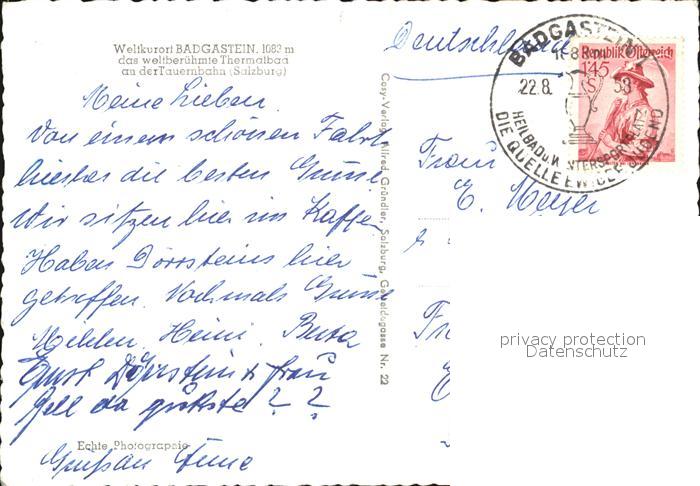 Weltkurort BADGASTEIN. 1083 m
das weltberühmte Thermalbad
an der Tauernbahn (Salzburg)
Meine Lieben.
Von einem schönen Fahrt
hierher die besten Grüsse
Wir sitzen hier im Kaffee
Haben Dörrsteins hier
getroffen. Nochmals Grüsse
Heini. Berta
Ernst Dörrstein & Frau
Gell da guckste? ?
Echte Photographie
Gruß an
Cosy-Verlag Alfred Gründler, Salzburg, Getreidegasse Nr. 22
Deutschland
BADGASTEIN 2
22.8. 58
HEILBAD U. WINTERSPORTPLATZ
DIE QUELLE EWIGER JUGEND
Republik Österreich
1.45
S
Frau
E. Meyer
privacy protection
Datenschutz